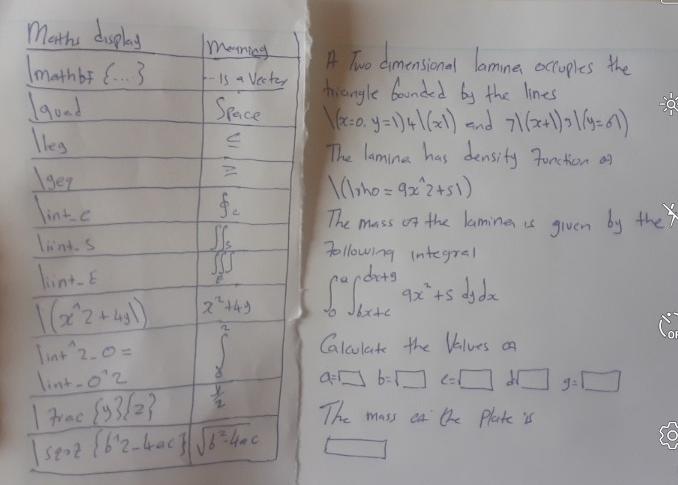 Maths display | Meaning
\mathbf {...} | -- Is a Vector
\quad | Space
\leq | ≤
\geq | ≥
\int_c | ∮c
\iint_S | ∬s
\iiint_E | ∭E
\(x^2+4y\) | x²+4y
\int^2_0 =
\int_0^2
\frac {y}{z} | y/z
\sqrt {b^2-4ac} | √b²-4ac
A Two dimensional lamina occupies the
triangle bounded by the lines
and
The lamina has density function of
\(\rho = 9x^2+5\)
The mass of the lamina is given by the
following integral
∫₀ᵃ ∫bx+c dx+g 9x²+5 dydx
Calculate the Values of
a= b= c= d= g=
The mass of the Plate is